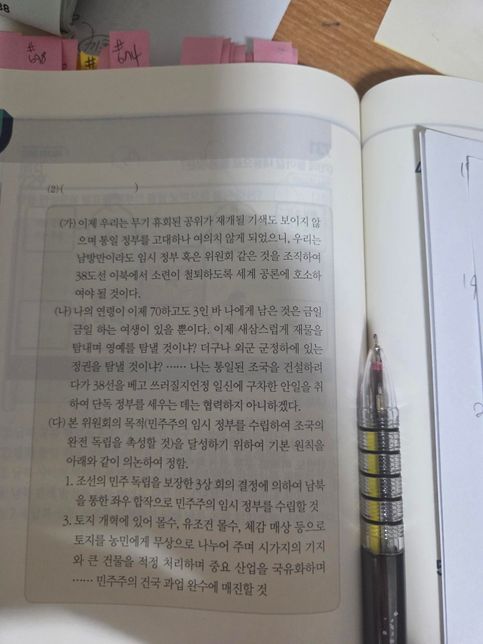 38
#
#
(2) (                    )
(가) 이제 우리는 무기 휴회된 공위가 재개될 기색도 보이지 않
으며 통일 정부를 고대하나 여의치 않게 되었으니, 우리는
남방만이라도 임시 정부 혹은 위원회 같은 것을 조직하여
38도선 이북에서 소련이 철퇴하도록 세계 공론에 호소하
여야 될 것이다.
(나) 나의 연령이 이제 70하고도 3인 바 나에게 남은 것은 금일
금일 하는 여생이 있을 뿐이다. 이제 새삼스럽게 재물을
탐내며 영예를 탐낼 것이냐? 더구나 외군 군정하에 있는
정권을 탐낼 것이냐? …… 나는 통일된 조국을 건설하려
다가 38선을 베고 쓰러질지언정 일신에 구차한 안일을 취
하여 단독 정부를 세우는 데는 협력하지 아니하겠다.
(다) 본 위원회의 목적(민주주의 임시 정부를 수립하여 조국의
완전 독립을 촉성할 것)을 달성하기 위하여 기본 원칙을
아래와 같이 의논하여 정함.
1. 조선의 민주 독립을 보장한 3상 회의 결정에 의하여 남북
을 통한 좌우 합작으로 민주주의 임시 정부를 수립할 것
3. 토지 개혁에 있어 몰수, 유조건 몰수, 체감 매상 등으로
토지를 농민에게 무상으로 나누어 주며 시가지의 기지
와 큰 건물을 적정 처리하며 중요 산업을 국유화하며
…… 민주주의 건국 과업 완수에 매진할 것